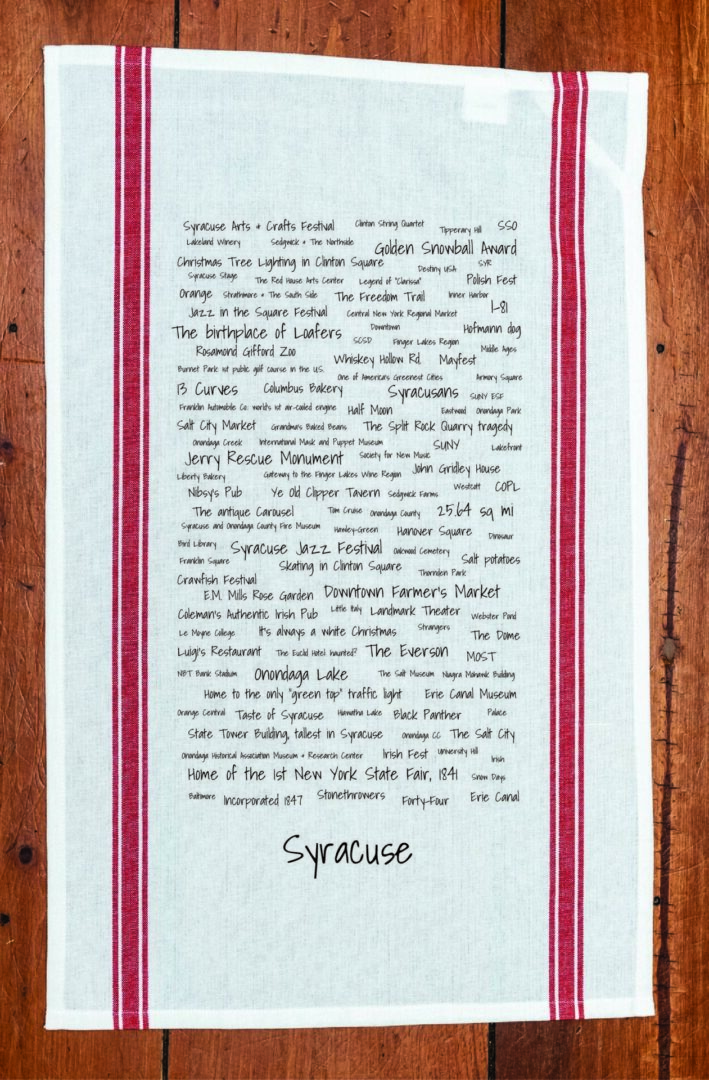 Syracuse Arts + Crafts Festival Clinton String Quartet Tipperary Hill SSO
Lakeland Winery Sedgwick + The Northside Golden Snowball Award
Christmas Tree Lighting in Clinton Square Destiny USA SYR
Syracuse Stage The Red House Arts Center Legend of "Clarissa" Polish Fest
Orange Strathmore + The South Side The Freedom Trail Inner Harbor
Jazz in the Square Festival Central New York Regional Market I-81
The birthplace of Loafers Downtown Hofmann dog
SCSD Finger Lakes Region
Rosamond Gifford Zoo Whiskey Hollow Rd. Mayfest Middle Ages
Burnet Park 1st public golf course in the U.S.
One of America's Greenest Cities Armory Square
13 Curves Columbus Bakery Syracusans SUNY ESF
Franklin Automobile Co: world's 1st air-cooled engine Half Moon Eastwood Onondaga Park
Salt City Market Grandma's Baked Beans The Split Rock Quarry tragedy
Onondaga Creek International Mask and Puppet Museum SUNY Lakefront
Jerry Rescue Monument Society for New Music
Liberty Bakery Gateway to the Finger Lakes Wine Region John Gridley House
Nibsy's Pub Ye Old Clipper Tavern Sedgwick Farms Westcott COPL
The antique Carousel Tom Cruise Onondaga County 25.64 sq mi
Syracuse and Onondaga County Fire Museum Hawley-Green Hanover Square Dinosaur
Bird Library Syracuse Jazz Festival Oakwood Cemetery
Franklin Square Skating in Clinton Square Salt potatoes
Thornden Park
Crawfish Festival
E.M. Mills Rose Garden Downtown Farmer's Market
Coleman's Authentic Irish Pub Little Italy Landmark Theater Webster Pond
Le Moyne College It's always a white Christmas Strangers The Dome
Luigi's Restaurant The Euclid Hotel haunted? The Everson MOST
NBT Bank Stadium Onondaga Lake The Salt Museum Niagra Mohawk Building
Home to the only "green top" traffic light Erie Canal Museum
Orange Central Taste of Syracuse Hiawatha Lake Black Panther Palace
State Tower Building, tallest in Syracuse Onondaga CC The Salt City
Onondaga Historical Association Museum + Research Center Irish Fest University Hill Irish
Home of the 1st New York State Fair, 1841 Snow Days
Baltimore Incorporated 1847 Stonethrowers Forty-Four Erie Canal
Syracuse